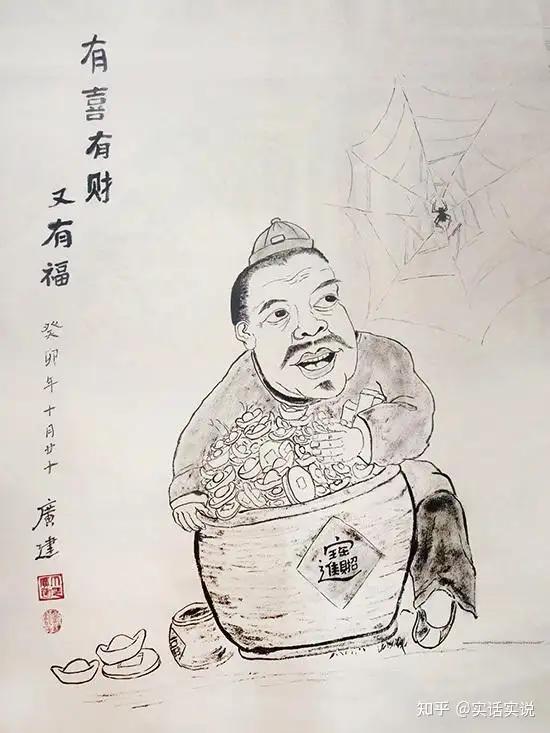 有喜有财
又有福
癸卯年十月廿十
廣建
招財進寶
知乎 @实话实说